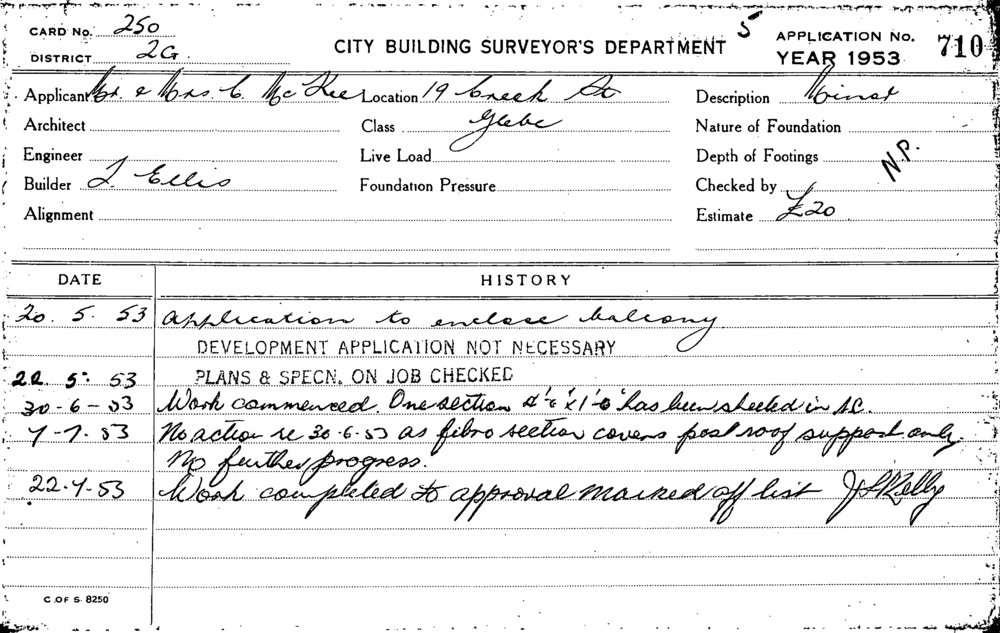 5
CARD No. 250
CITY BUILDING SURVEYOR'S DEPARTMENT
APPLICATION No. 710
DISTRICT 2G.
YEAR 1953
Applicant Mr. & Mrs. C. McKee Location 19 Creek St Description Minor
Architect Class Glebe Nature of Foundation
Engineer Live Load Depth of Footings N.P.
Builder J. Ellis Foundation Pressure Checked by
Alignment Estimate £20
DATE HISTORY
20. 5. 53 Application to enclose balcony
DEVELOPMENT APPLICATION NOT NECESSARY
22. 5. 53 PLANS & SPECN. ON JOB CHECKED
30-6-53 Work commenced. One section has been sheeted in A.C.
7-7.53 No action re 30.6.53 as fibro section covers post roof support only.
No further progress.
22.7.53 Work completed to approval marked off list J Kelly
C. OF S. 8250